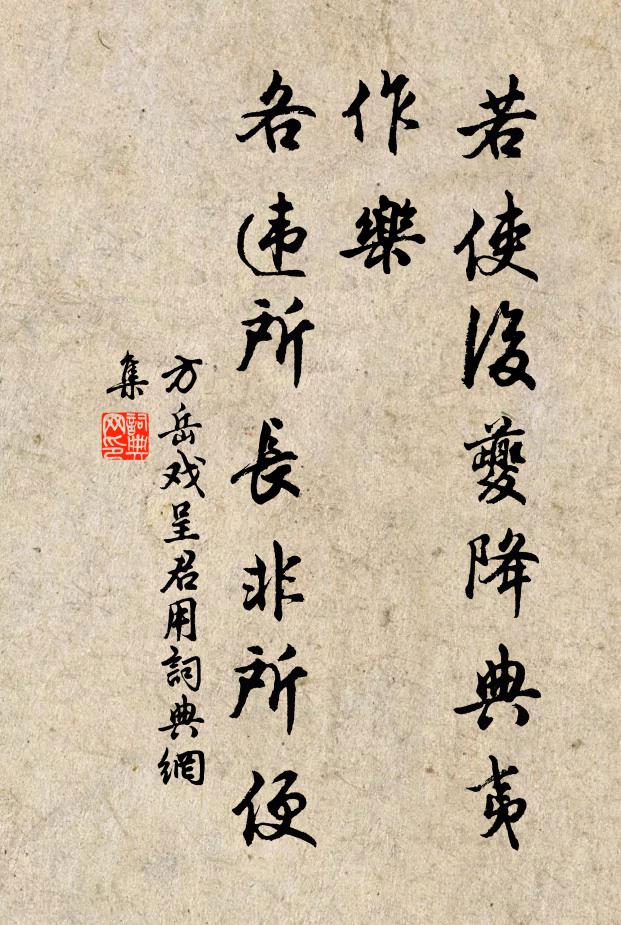 若使后夔降典夷
作樂
各违所長非所便
方岳戏呈君用詞典網
集
詞典
网印